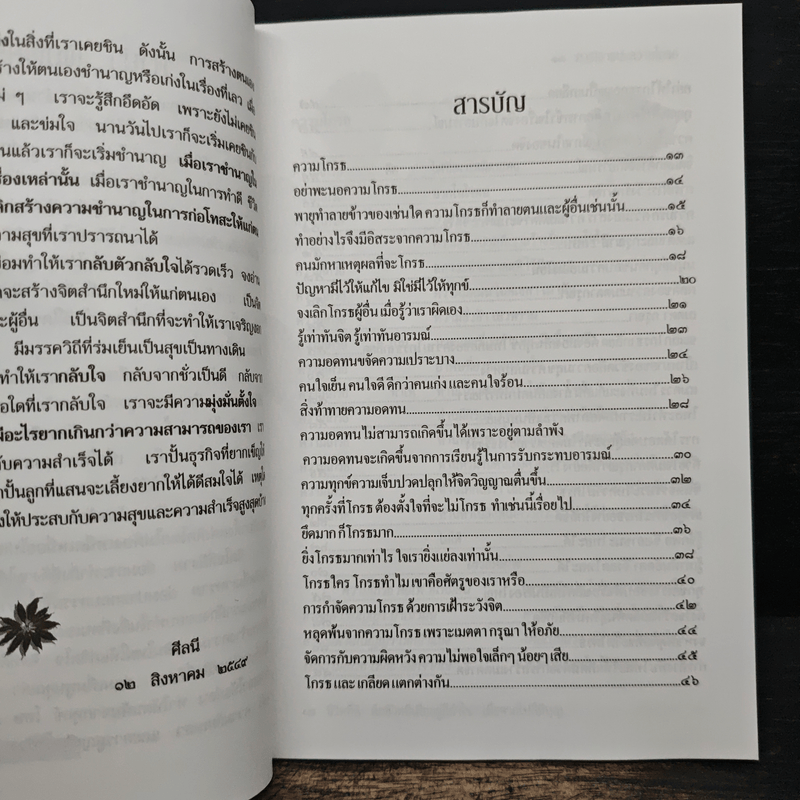 ในสิ่งที่เราเคยชิน ดังนั้น การสร้างตนเอง
ให้ตนเองชำนาญหรือเก่งในเรื่องที่เลว เมื่อ
ๆ เราจะรู้สึกอึดอัด เพราะยังไม่เคยชิน
และข่มใจ นานวันไปเราก็จะเริ่มเคยชินกับ
แล้วเราก็จะเริ่มชำนาญ เมื่อเราชำนาญใน
เหล่านั้น เมื่อเราชำนาญในการทำดี ชีวิต
สร้างความชำนาญในการก่อโทสะให้แก่ตน
ความสุขที่เราปรารถนาได้
ย่อมทำให้เรากลับตัวกลับใจได้รวดเร็ว จงอ่าน
จะสร้างจิตสำนึกใหม่ให้แก่ตนเอง เป็นจิต
ผู้อื่น เป็นจิตสำนึกที่จะทำให้เราเจริญ
มีมรรควิถีที่ร่มเย็นเป็นสุขเป็นทางเดิน
ทำให้เรากลับใจ กลับจากชั่วเป็นดี กลับจาก
ใดที่เรากลับใจ เราจะมีความมุ่งมั่นตั้งใจ
มีอะไรยากเกินกว่าความสามารถของเรา เรา
กับความสำเร็จได้ เราปั้นธุรกิจที่ยากเข็ญให้
ปั้นลูกที่แสนจะเลี้ยงยากให้ได้ดีสมใจได้
ให้ประสบกับความสุขและความสำเร็จสูงสุด
ศีลนี
๑๒ สิงหาคม ๒๕๔๙
สารบัญ
ความโกรธ...๑๓
อย่าพะนอความโกรธ...๑๔
พายุทำลายข้าวของเช่นใด ความโกรธก็ทำลายตนและผู้อื่นเช่นนั้น...๑๕
ทำอย่างไรจึงมีอิสระจากความโกรธ...๑๖
คนมักหาเหตุผลที่จะโกรธ...๑๘
ปัญหามีไว้ให้แก้ไข มิใช่มีไว้ให้ทุกข์...๒๐
จงเลิกโกรธผู้อื่น เมื่อรู้ว่าเราผิดเอง...๒๑
รู้เท่าทันจิต รู้เท่าทันอารมณ์...๒๓
ความอดทนขจัดความเปราะบาง...๒๔
คนใจเย็น คนใจดี ดีกว่าคนเก่ง และคนใจร้อน...๒๖
สิ่งท้าทายความอดทน...๒๘
ความอดทนไม่สามารถเกิดขึ้นได้เพราะอยู่ตามลำพัง
ความอดทนจะเกิดขึ้นจากการเรียนรู้ในการรับกระทบอารมณ์...๓๐
ความทุกข์ความเจ็บปวดปลุกให้จิตวิญญาณตื่นขึ้น...๓๒
ทุกครั้งที่โกรธ ต้องตั้งใจที่จะไม่โกรธ ทำเช่นนี้เรื่อยไป...๓๔
ยึดมาก ก็โกรธมาก...๓๖
ยิ่งโกรธมากเท่าไร ใจเรายิ่งแย่ลงเท่านั้น...๓๘
โกรธใคร โกรธทำไม เขาคือศัตรูของเราหรือ...๔๐
การกำจัดความโกรธ ด้วยการเฝ้าระวังจิต...๔๒
หลุดพ้นจากความโกรธ เพราะเมตตา กรุณา ให้อภัย...๔๔
จัดการกับความผิดหวัง ความไม่พอใจเล็กๆ น้อยๆ เสีย...๔๕
โกรธ และ เกลียด แตกต่างกัน...๔๖